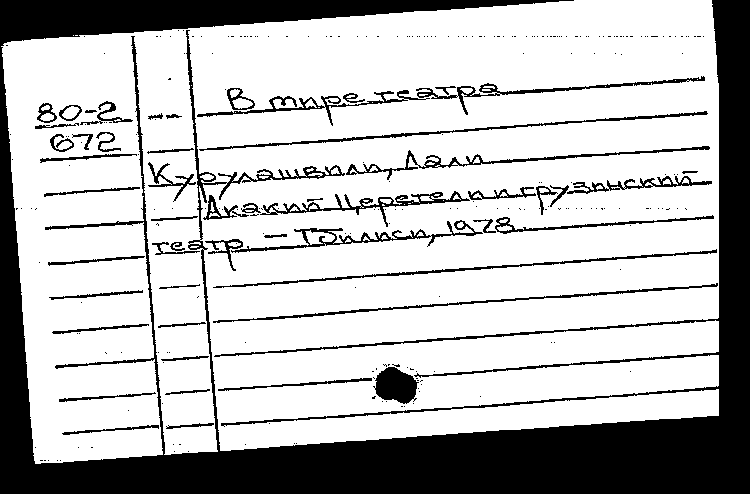 80-2 -- В мире театра
672
Курулашвили, Лали
Акакий Церетели и грузинский
театр. – Тбилиси, 1978.